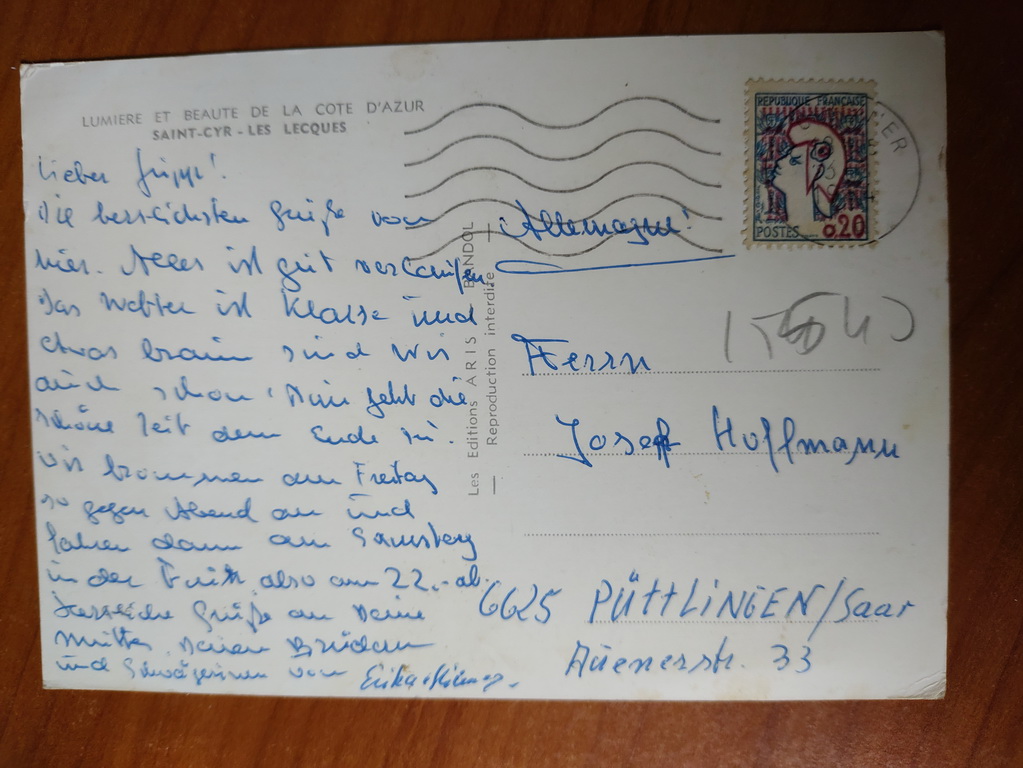 LUMIERE ET BEAUTE DE LA COTE D'AZUR
SAINT-CYR - LES LECQUES
Lieber
Die herzlichsten Grüße von
hier. Alles ist gut verlaufen.
Das Wetter ist Klasse und
etwas braun sind wir
auch schon. Nun geht die
schöne Zeit dem Ende zu.
Wir kommen am Freitag
so gegen Abend an und
fahren dann am Samstag
in der Früh also am 22. ab.
Herzliche Grüße an Deine
Mutter, Deinen Brüdern
und Schwägerinnen von Erika
Les Editions ARIS - BANDOL
Reproduction interdite
REPUBLIQUE FRANÇAISE
POSTES 0.20
MER
Allemagne!
Herrn
Josef Hoffmann
6625 PÜTTLINGEN/Saar
33